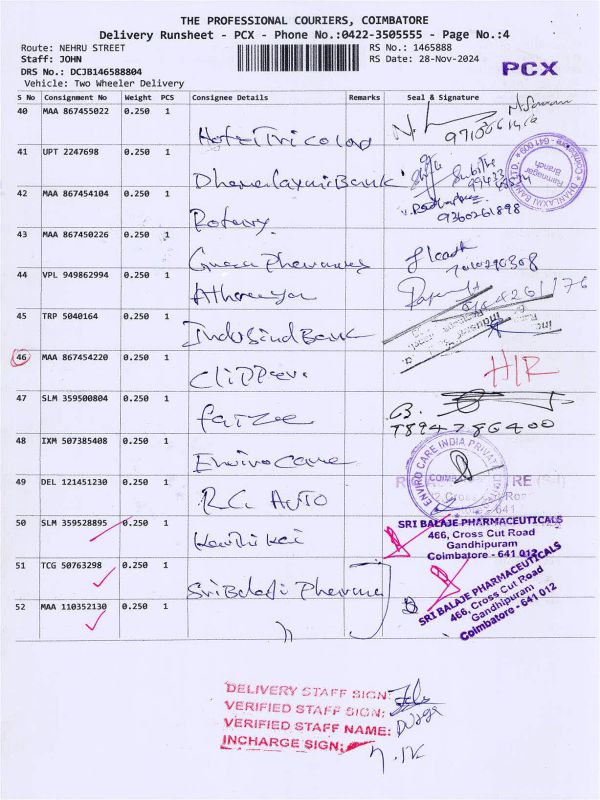 THE PROFESSIONAL COURIERS, COIMBATORE
Delivery Runsheet - PCX - Phone No.:0422-3505555 - Page No.:4
Route: NEHRU STREET
RS No.: 1465888
Staff: JOHN
RS Date: 28-Nov-2024
DRS No.: DCJB146588804
PCX
Vehicle: Two Wheeler Delivery
S No Consignment No Weight PCS Consignee Details Remarks Seal & Signature
40 MAA 867455022 0.250 1 Hotel Tricolor
41 UPT 2247698 0.250 1 Dhanalaxmi Bank
DHANLAXMI BANK LTD. Ramnagar Branch Coimbatore - 641 009
42 MAA 867454104 0.250 1 Rotary
9360261898
43 MAA 867450226 0.250 1 Pharmacy
44 VPL 949862994 0.250 1
45 TRP 5040164 0.250 1 IndusInd Bank
46 MAA 867454220 0.250 1 Clipper
H/R
47 SLM 359500804 0.250 1
B. 7894786400
48 IXM 507385408 0.250 1 Enviro Care
ENVIRO CARE INDIA PRIVATE
49 DEL 121451230 0.250 1 R.G. AUTO
50 SLM 359528895 0.250 1
SRI BALAJE PHARMACEUTICALS
466, Cross Cut Road
Gandhipuram
Coimbatore - 641 012
51 TCG 50763298 0.250 1 Sri Balaji Pharma
SRI BALAJE PHARMACEUTICALS
466, Cross Cut Road
Gandhipuram
Coimbatore - 641 012
52 MAA 110352130 0.250 1 "
DELIVERY STAFF SIGN:
VERIFIED STAFF SIGN:
VERIFIED STAFF NAME: Durga
INCHARGE SIGN: